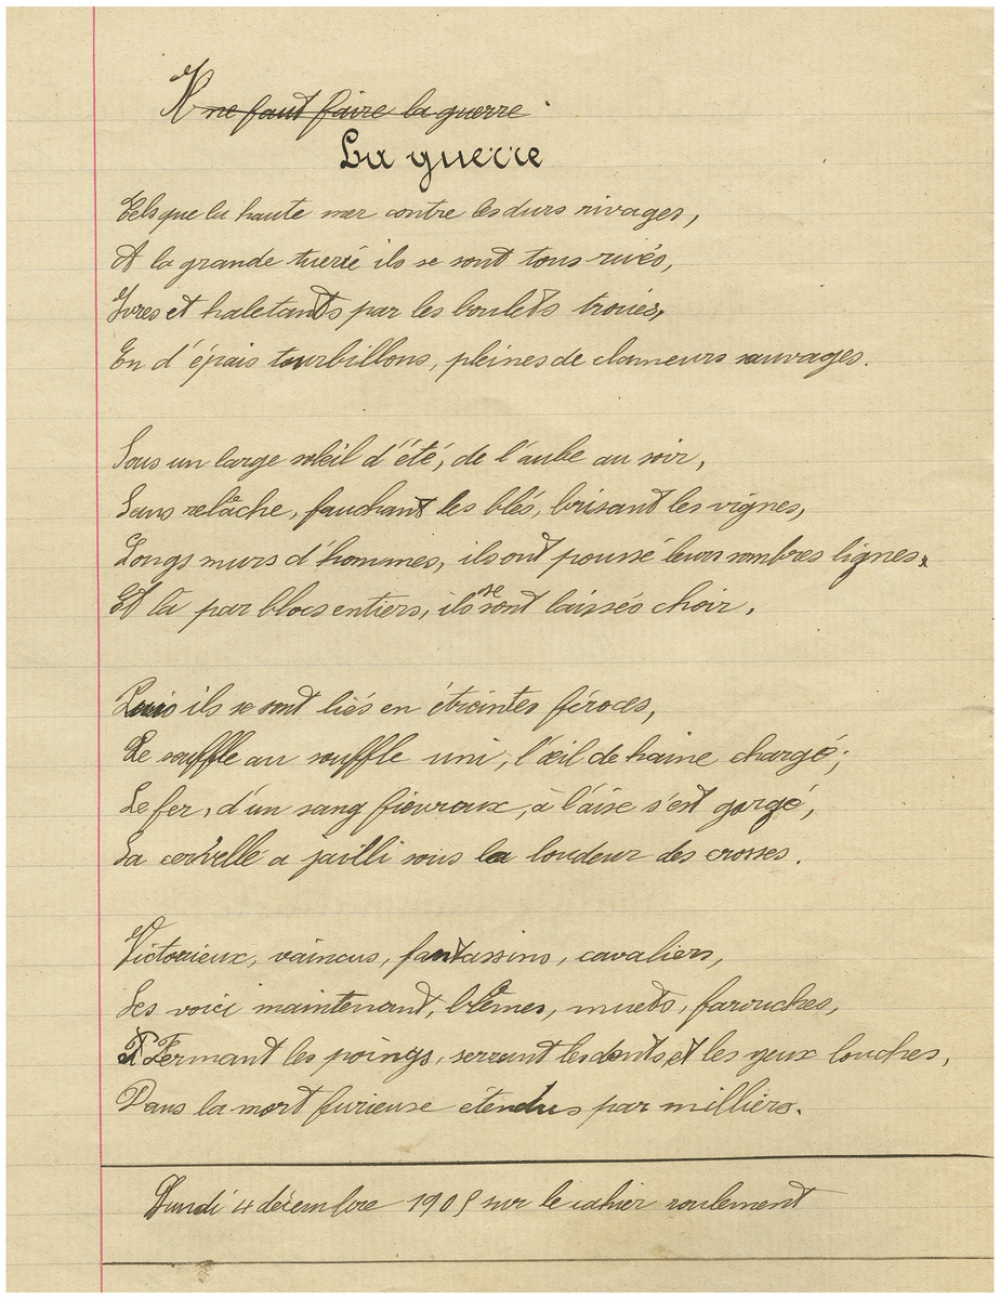 Il ne faut faire la guerre.
La guerre
Tels que la haute mer contre les durs rivages,
A la grande tuerie ils se sont tous rués,
Ivres et haletants par les boulets troués,
En d'épais tourbillons, pleines de clameurs sauvages.
Sous un large soleil d'été, de l'aube au soir,
Sans relâche, fauchant les blés, brisant les vignes,
Longs murs d'hommes, ils ont poussé leurs sombres lignes,
Et là par blocs entiers, ils se sont laissés choir.
Puis ils se sont liés en étreintes féroces,
Le souffle au souffle uni, l'œil de haine chargé;
Le fer, d'un sang fievreux, à l'aise s'est gorgé,
La cervelle a jailli sous la loudeur des crosses.
Victorieux, vaincus, fantassins, cavaliers,
Les voici maintenant, blêmes, muets, farouches,
Fermant les poings, serrant les dents, et les yeux louches,
Dans la mort furieuse étendus par milliers.
Lundi 4 décembre 1905 sur le cahier roulement